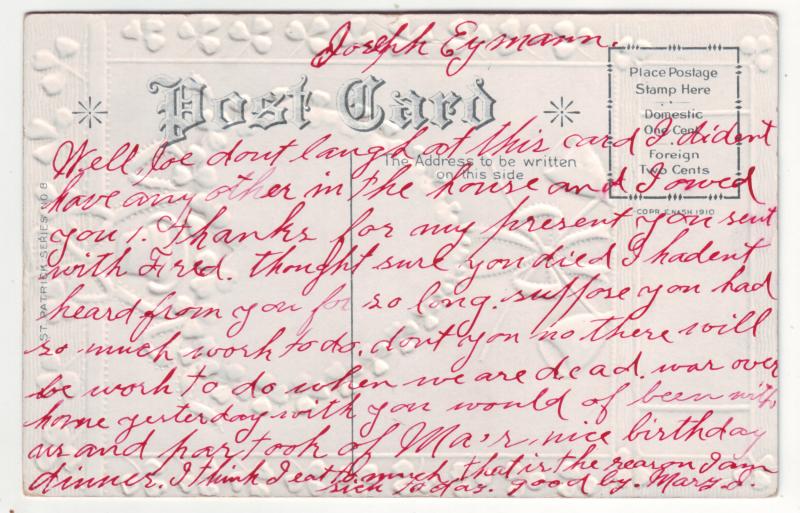 Joseph Eymann.
Post Card
Place Postage
Stamp Here
Domestic
One Cent
Foreign
Two Cents
The Address to be written
on this side
COPR. E. NASH 1910
ST. PATRICK SERIES NO. 8
Well, Joe dont laugh at this card I dident
have any other in the house and I owed
you 1. Thanks for my present you sent
with Fred. thought sure you died I hadent
heard from you for so long. suppose you had
so much work to do. dont you no there will
be work to do when we are dead. was over
home yesterday wish you would of been with
us and partook of Ma's nice birthday
dinner. I think I eat to much that is the reason I am
sick to day. good by.